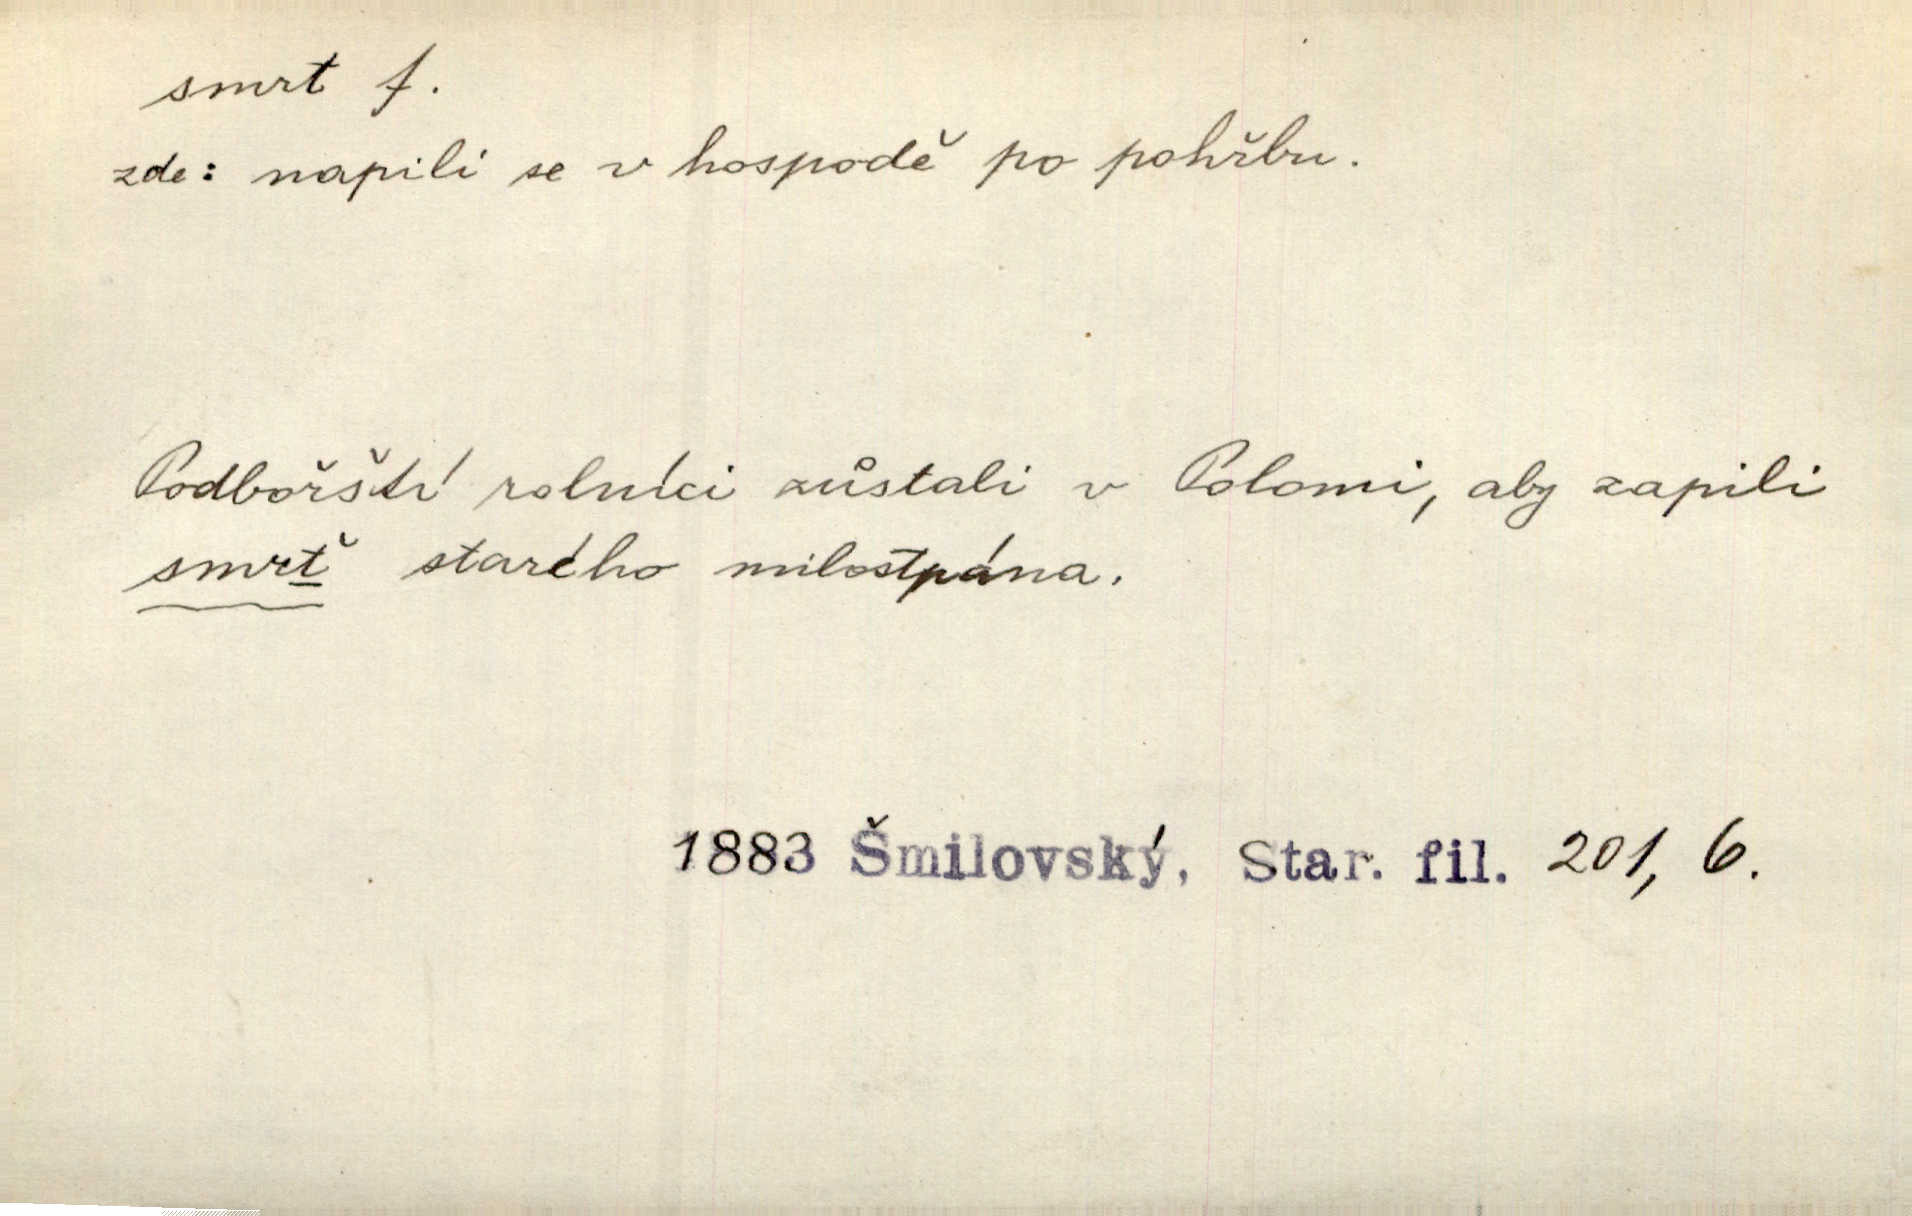 smrt f.
zde: napili se v hospodě po pohřbu.
Podbořští rolníci zůstali v Polomi, aby zapili
smrť starého milostpána.
1883 Šmilovský, Star. fil. 201, 6.